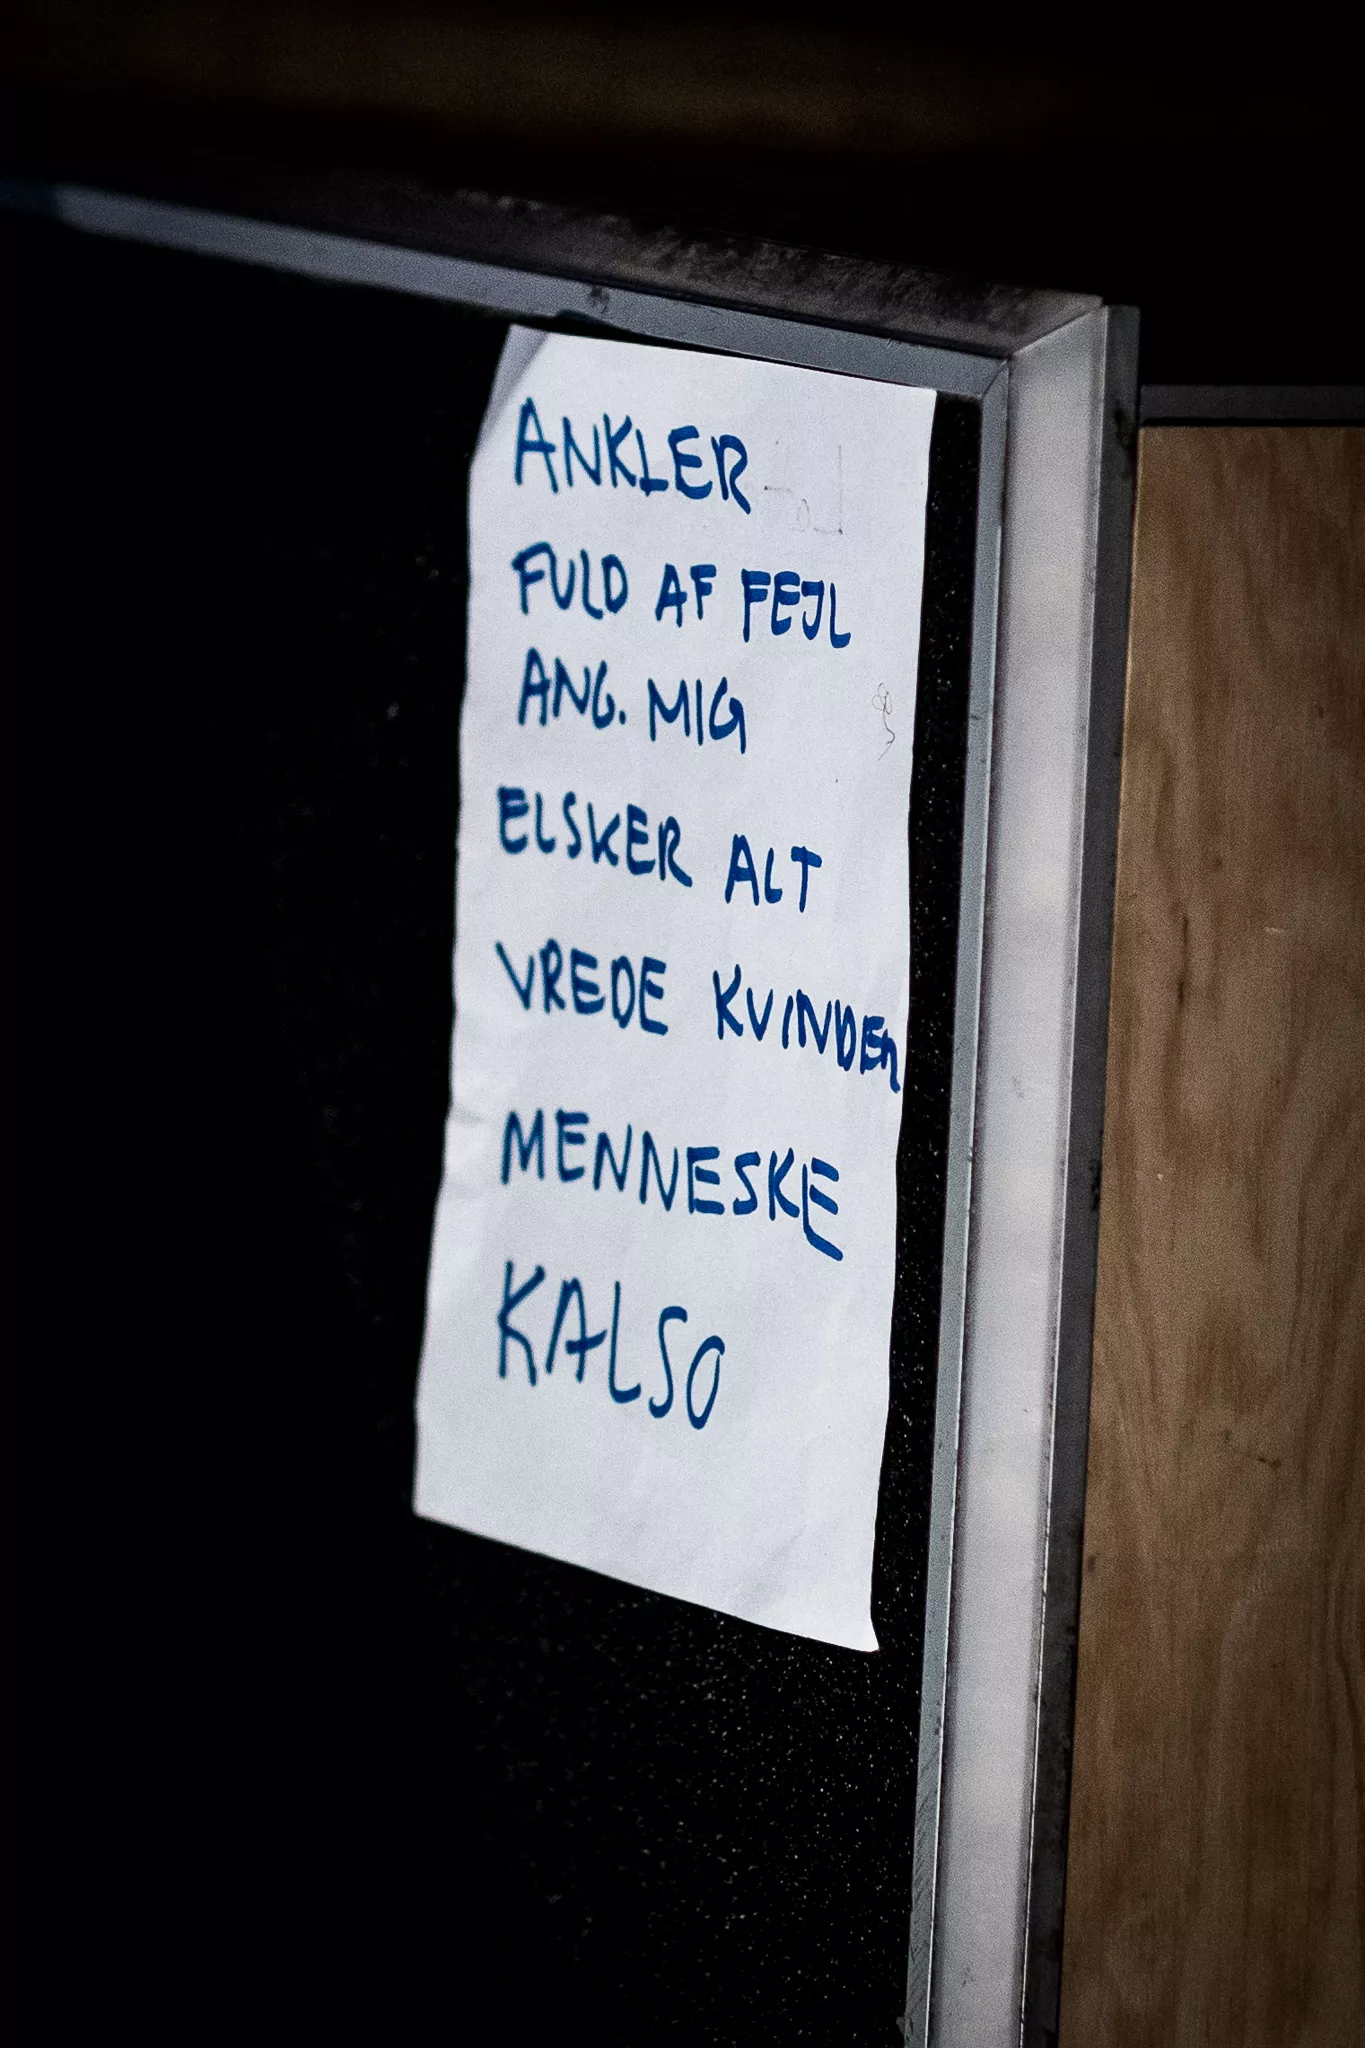 ANKLER
FULD AF FEJL
ANG. MIG
ELSKER ALT
VREDE KVINDER
MENNESKE
KALSO